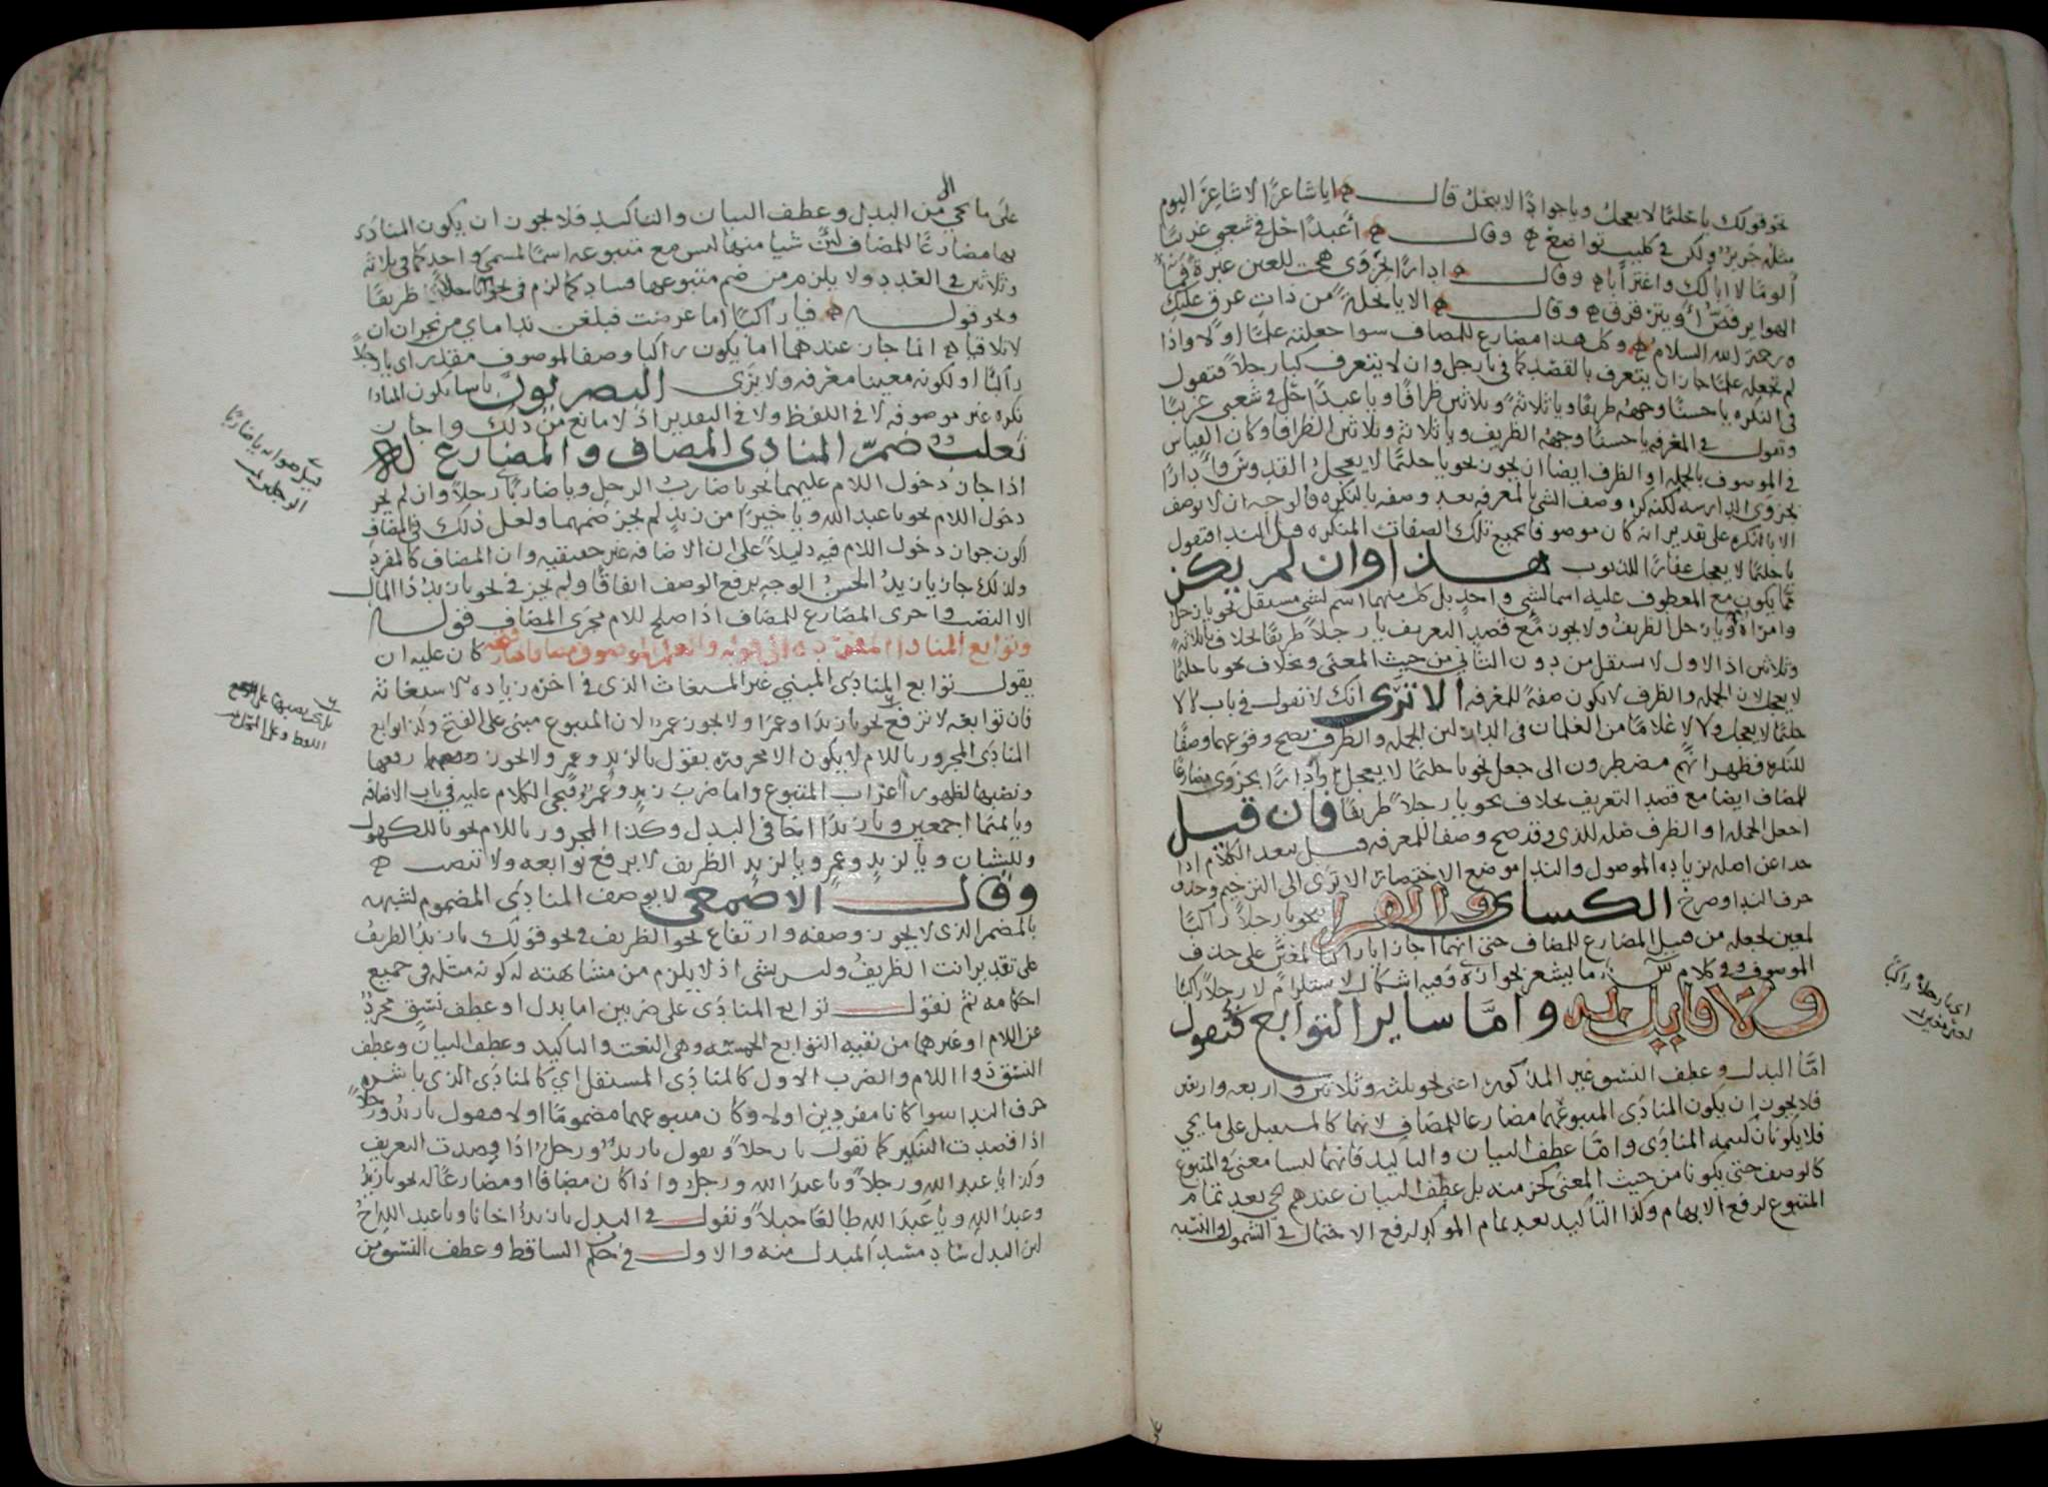 نحو قولك يا حليما لا يعجل ويا جوادا لا يبخل قال ايا شاعرا لا شاعر اليوم
مثله جرير ولكن في كليب تواضع وقال أعبدا حل في شعبى غريبا
ألوما لا ابا لك واغترابا وقال ادارا بحزوى هجت للعين عبرة فماء
الهوى يرفض أو يترقرق وقال الا يا نخلة من ذات عرق عليك
ورحمة الله السلام وكل هذا مضارع للمضاف سوا جعلته علما او لا واذا
لم تجعله علما جاز ان يتعرف بالقصد كما في يا رجل وان لا يتعرف كيا رجلا فتقول
في النكره يا حسنا وجهه ظريفا ويا ثلاثة وثلاثين ظرافا ويا عبدا حل في شعبى غريبا
وتقول في المعرفه يا حسنا وجهه الظريف ويا ثلاثة وثلاثين الظرافا وكان القياس
في الموصوف بالجمله او الظرف ايضا ان يجوز نحو يا حليما لا يعجل القدوس ويا دارا
بحزوى الدارسه لكنه كره وصف الشي بالمعرفه بعد وصفه بالنكره فالوجه ان لا يوصف
الا بالنكره على تقدير انه كان موصوفا بجميع تلك الصفات المنكره قبل الندا فتقول
يا حليما لا يعجل غفارا للذنوب هذا وان لم يكن
مما يكون مع المعطوف عليه اسما لشي واحد بل كل منهما اسم لشي مستقل نحو يا رجل
وامراة ويا رجل الظريف ولا يجوز مع قصد التعريف يا رجلا ظريفا بخلاف يا ثلاثة
وثلاثين اذ الاول لا يستقل من دون الثاني من حيث المعنى وبخلاف نحو يا حليما
لا يعجل لان الجمله والظرف لا يكون صفة للمعرفه الا ترى انك لا تقول في باب لا لا
حليما لا يعجل ولا لا غلاما من الغلمان في الدار لان الجمله والظرف يصح وقوعهما وصفا
للنكره فظهر انهم مضطرون الى جعل نحو يا حليما لا يعجل وأدارا بحزوى مضارعا
للمضاف ايضا مع قصد التعريف بخلاف نحو يا رجلا ظريفا فان قيل
اجعل الجمله او الظرف صله للذي وقد صح وصفا للمعرفه قيل يبعد الكلام اذا
جدا عن اصله بزياده الموصول والندا موضع الاختصار الا ترى الى الترخيم وحذف
حرف الندا وصرح الكساي والفرا بنحو يا رجلا راكبا
لمعين لجعله من قبيل المضارع للمضاف حتى انهما اجازا يا راكبا لمعين على حذف
الموصوف وفي كلام س ما يشعر بجوازه وفيه اشكال لاستلزام لا رجلا راكبا
ولا قايل به واما ساير التوابع فنقول
امّا البدل وعطف النسق غير المذكور اعنى نحو ثلثه وثلاثين واربعه واربعين
فلا يجوز ان يكون المنادى المتبوع بهما مضارعا للمضاف لانهما كالمستقبل على ما يجي
فلا يكونان لتتمه المنادى وامّا عطف البيان والتاكيد فانهما ليسا معنى في المتبوع
كالوصف حتى يكونا من حيث المعنى كجز منه بل عطف البيان عندهم يجي بعد تمام
المتبوع لرفع الابهام وكذا التأكيد بعد تمام الموكد لرفع الاحتمال في الشمول والنسبه
اى يا رجلا راكبا
لغير معين
على
على ما يجي من البدل وعطف البيان والتاكيد فلا يجوز ان يكون المنادى
بها مضارعا للمضاف لان شيا منها ليس مع متبوعه اسما لمسمى واحد كما في ثلاثه
وثلاثين في العدد ولا يلزم من ضم متبوعها فساد كما لزم في نحو يا رجلا ظريفا
ونحو قوله فيا راكبا اما عرضت فبلغن نداماي من نجران ان
لا تلاقيا انما جاز عندهما اما بكون راكبا وصفا لموصوف مقدر اى يا رجلا
راكبا او لكونه معينا معرفه ولا يرى البصريون باسا بكون المنادا
نكره غير موصوفه لا في اللفظ ولا في التقدير اذ لا مانع من ذلك واجاز
ثعلب ضمّ المنادى المضاف والمضارع له
اذا جاز دخول اللام عليهما نحو يا ضارب الرجل ويا ضاربا رجلا وان لم يجز
دخول اللام نحو يا عبد الله ويا خيرا من زيد لم يجز ضمهما ولعل ذلك في المضاف
لكون جواز دخول اللام فيه دليلا على ان الاضافه غير حقيقيه وان المضاف كالمفرد
ولذلك جاز يا زيد الحسن الوجه برفع الوصف اتفاقا ولم يجز في نحو يا زيد ذا المال
الا النصب واجرى المضارع للمضاف اذا صلح للام مجرى المضاف قوله
وتوابع المنادا كان عليه ان
يقول توابع المنادى المبني غير المستغاث الذى في اخره زياده الاستغاثة
فان توابعه لا ترفع نحو يا زيدا وعمرا ولا يجوز عمرو لان المتبوع مبنى على الفتح وكذا توابع
المنادى المجرور باللام لا يكون الا مجروره يقول يا لزيد وعمرو ولا يجوز رفعها
ونصبها لظهور اعراب المتبوع واما ضرب زيد وعمرا فيجى الكلام عليه في باب الاضافه
ويا تميما اجمعين ويا زيدا اخا في البدل وكذا المجرور باللام نحو يا للكهول
وللشبان ويا لزيد وعمرو ويا لزيد الظريف لا يرفع توابعه ولا تنصب
وقال الاصمعي لا يوصف المنادى المضموم لشبهه
بالمضمر الذى لا يجوز وصفه وارتفاع نحو الظريف في نحو قولك يا زيد الظريف
على تقدير انت الظريف وليس بشى اذ لا يلزم من مشابهته له كونه مثله في جميع
احكامه ثم نقول توابع المنادى على ضربين اما بدل او عطف نسق مجرد
عن اللام او غيرهما من بقيه التوابع الخمسه وهى النعت والتاكيد وعطف البيان وعطف
النسق ذو اللام والضرب الاول كالمنادى المستقل اي كالمنادى الذى باشره
حرف الندا سوا كانا مفردين اولا وكان متبوعهما مضموما اولا فتقول يا زيد ورجلا
اذا قصدت التنكير كما تقول يا رجلا وتقول يا زيد ورجل اذا قصدت التعريف
وكذا يا عبد الله ورجلا ويا عبد الله ورجل واذا كان مضافا او مضارعا له نحو يا زيد
وعبد الله ويا عبد الله طالعا جبلا وتقول في البدل يا زيد اخانا ويا عبد الله اخ
لان البدل ساد مسد المبدل منه والاول في حكم الساقط وعطف النسق من